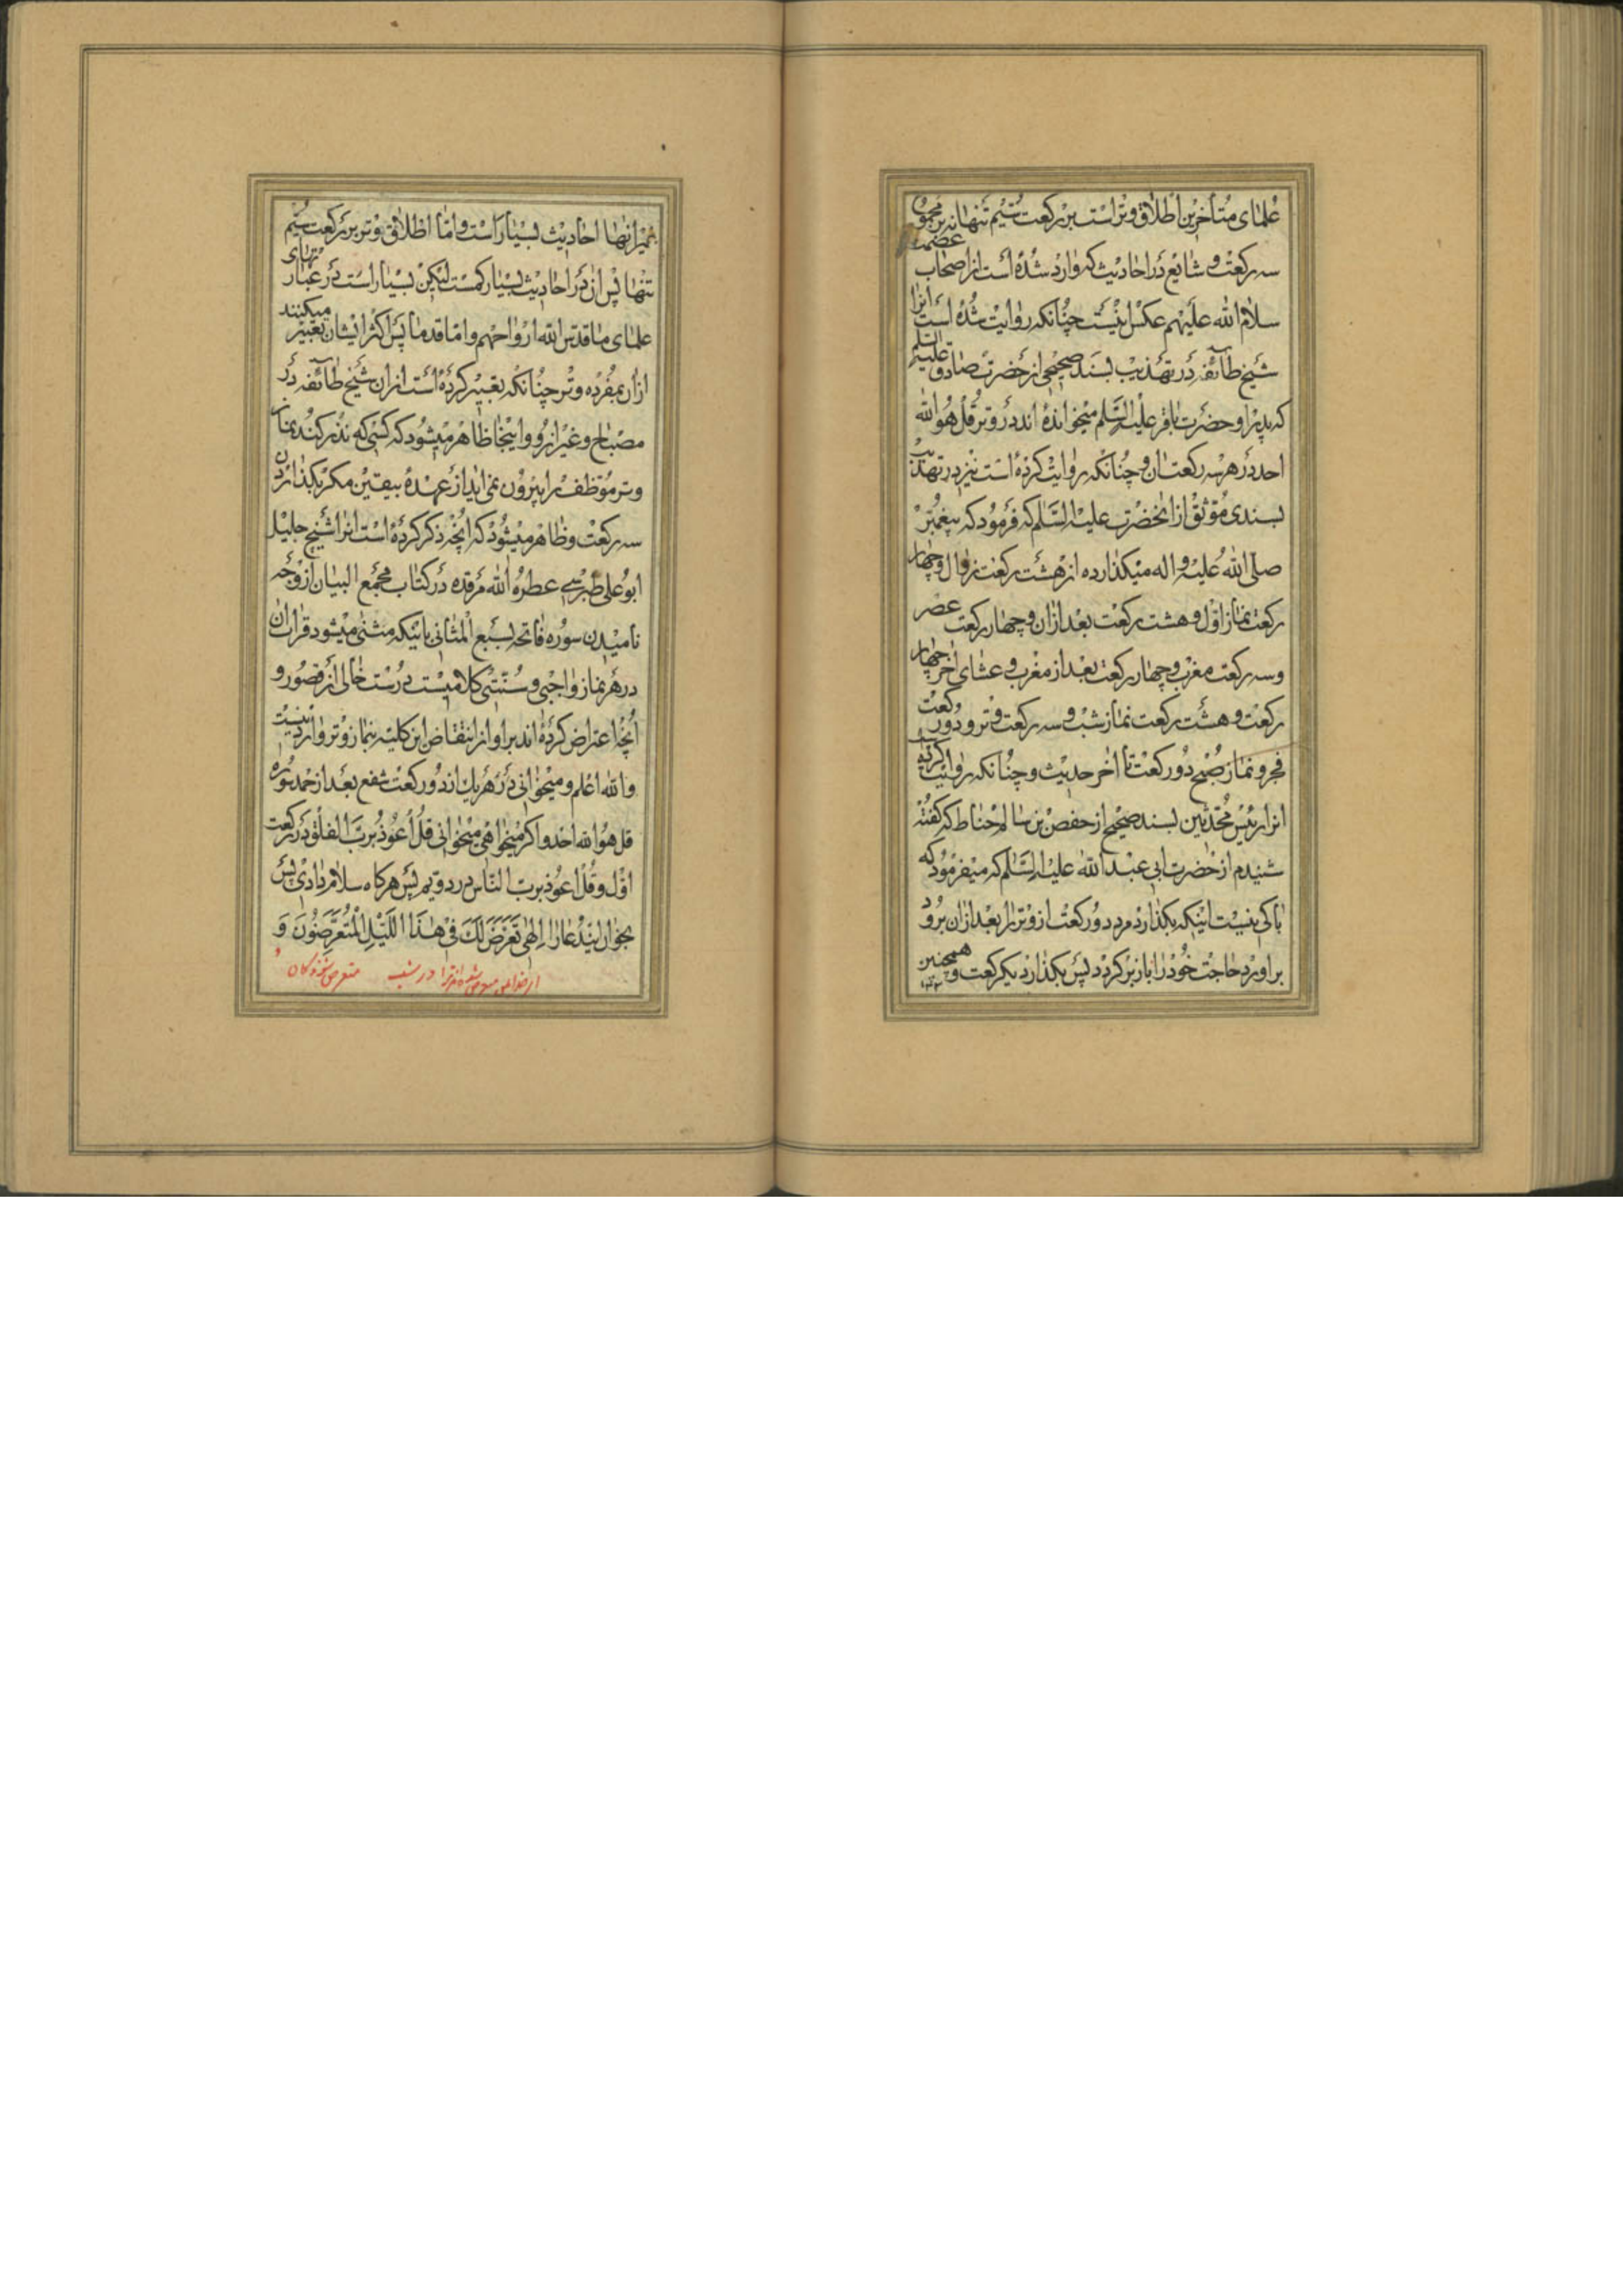 علمای متأخرین اطلاق وتر است بر رکعت سیم تنها نه بر مجموع
سه رکعت و شایع در احادیث که وارد شده است از اصحاب عصمت
سلام الله علیهم عکس اینست چنانکه روایت شده است انرا
شیخ طائفه در تهذیب بسند صحیحی از حضرت صادق علیه السلم
که پدر او حضرت باقر علیه السلم میخوانده اند در وتر قل هو الله
احد در هر سه رکعت ان و چنانکه روایت کرده است نیز در تهذیب
بسندی موثق از انحضرت علیه السلم که فرمود که پیغمبر
صلی الله علیه و اله میکذارده از هشت رکعت زوال و چهار
رکعت نماز اول و هشت رکعت بعد ازان و چهار رکعت عصر
وسه رکعت مغرب و چهار رکعت بعد از مغرب و عشای اخر چهار
رکعت و هشت رکعت نماز شب و سه رکعت وتر و دو رکعت
فجر و نماز صبح دو رکعت تا اخر حدیث و چنانکه روایت کرده
انرا رئیس محدثین بسند صحیح از حفص بن سالم حناط که گفته
شنیدم از حضرت ابی عبد الله علیه السلم که میفرمود که
باکی نیست اینکه بکذارد مرد دو رکعت از وتر را بعد ازان برود
براورد حاجت خود را باز برکردد پس بکذارد یکرکعت و همچنین
غیر انها احادیث بسیار است و اما اطلاق وتر بر رکعت سیم
تنها پس ان در احادیث بسیار کمست لیکن بسیار است در عبارتهای
علمای ما قدس الله ارواحهم و اما قدما پس اکثر ایشان تعبیر میکنند
ازان بمفرده وتر چنانکه تعبیر کرده است ازان شیخ طائفه در
مصباح و غیر ان و از اینجا ظاهر میشود که کسی که نذر کند نماز
وتر موظف را بیرون نمی اید از عهده بیقین مکر بکذاردن
سه رکعت و ظاهر میشود که انچه ذکر کرده است انرا شیخ جلیل
ابو علی طبرسی عطر الله مرقده در کتاب مجمع البیان از وجه
نامیدن سوره فاتحه بسبع المثانی باینکه مثنی میشود قرائت ان
در هر نماز واجبی و سنتی کلامیست درست خالی از قصور و
انچه اعتراض کرده اند بر او از انتقاض این کلیه بنماز وتر وارد نیست
و الله اعلم و میخوانی در هر یک از دو رکعت شفع بعد از حمد سوره
قل هو الله احد و اکر میخواهی میخوانی قل اعوذ برب الفلق در رکعت
اول و قل اعوذ برب الناس در دویم پس هرکاه سلام دادی پس
بخوان این دعا را الهی تعرض لک فی هذا اللیل المتعرضون و
متعرض شوندکان و